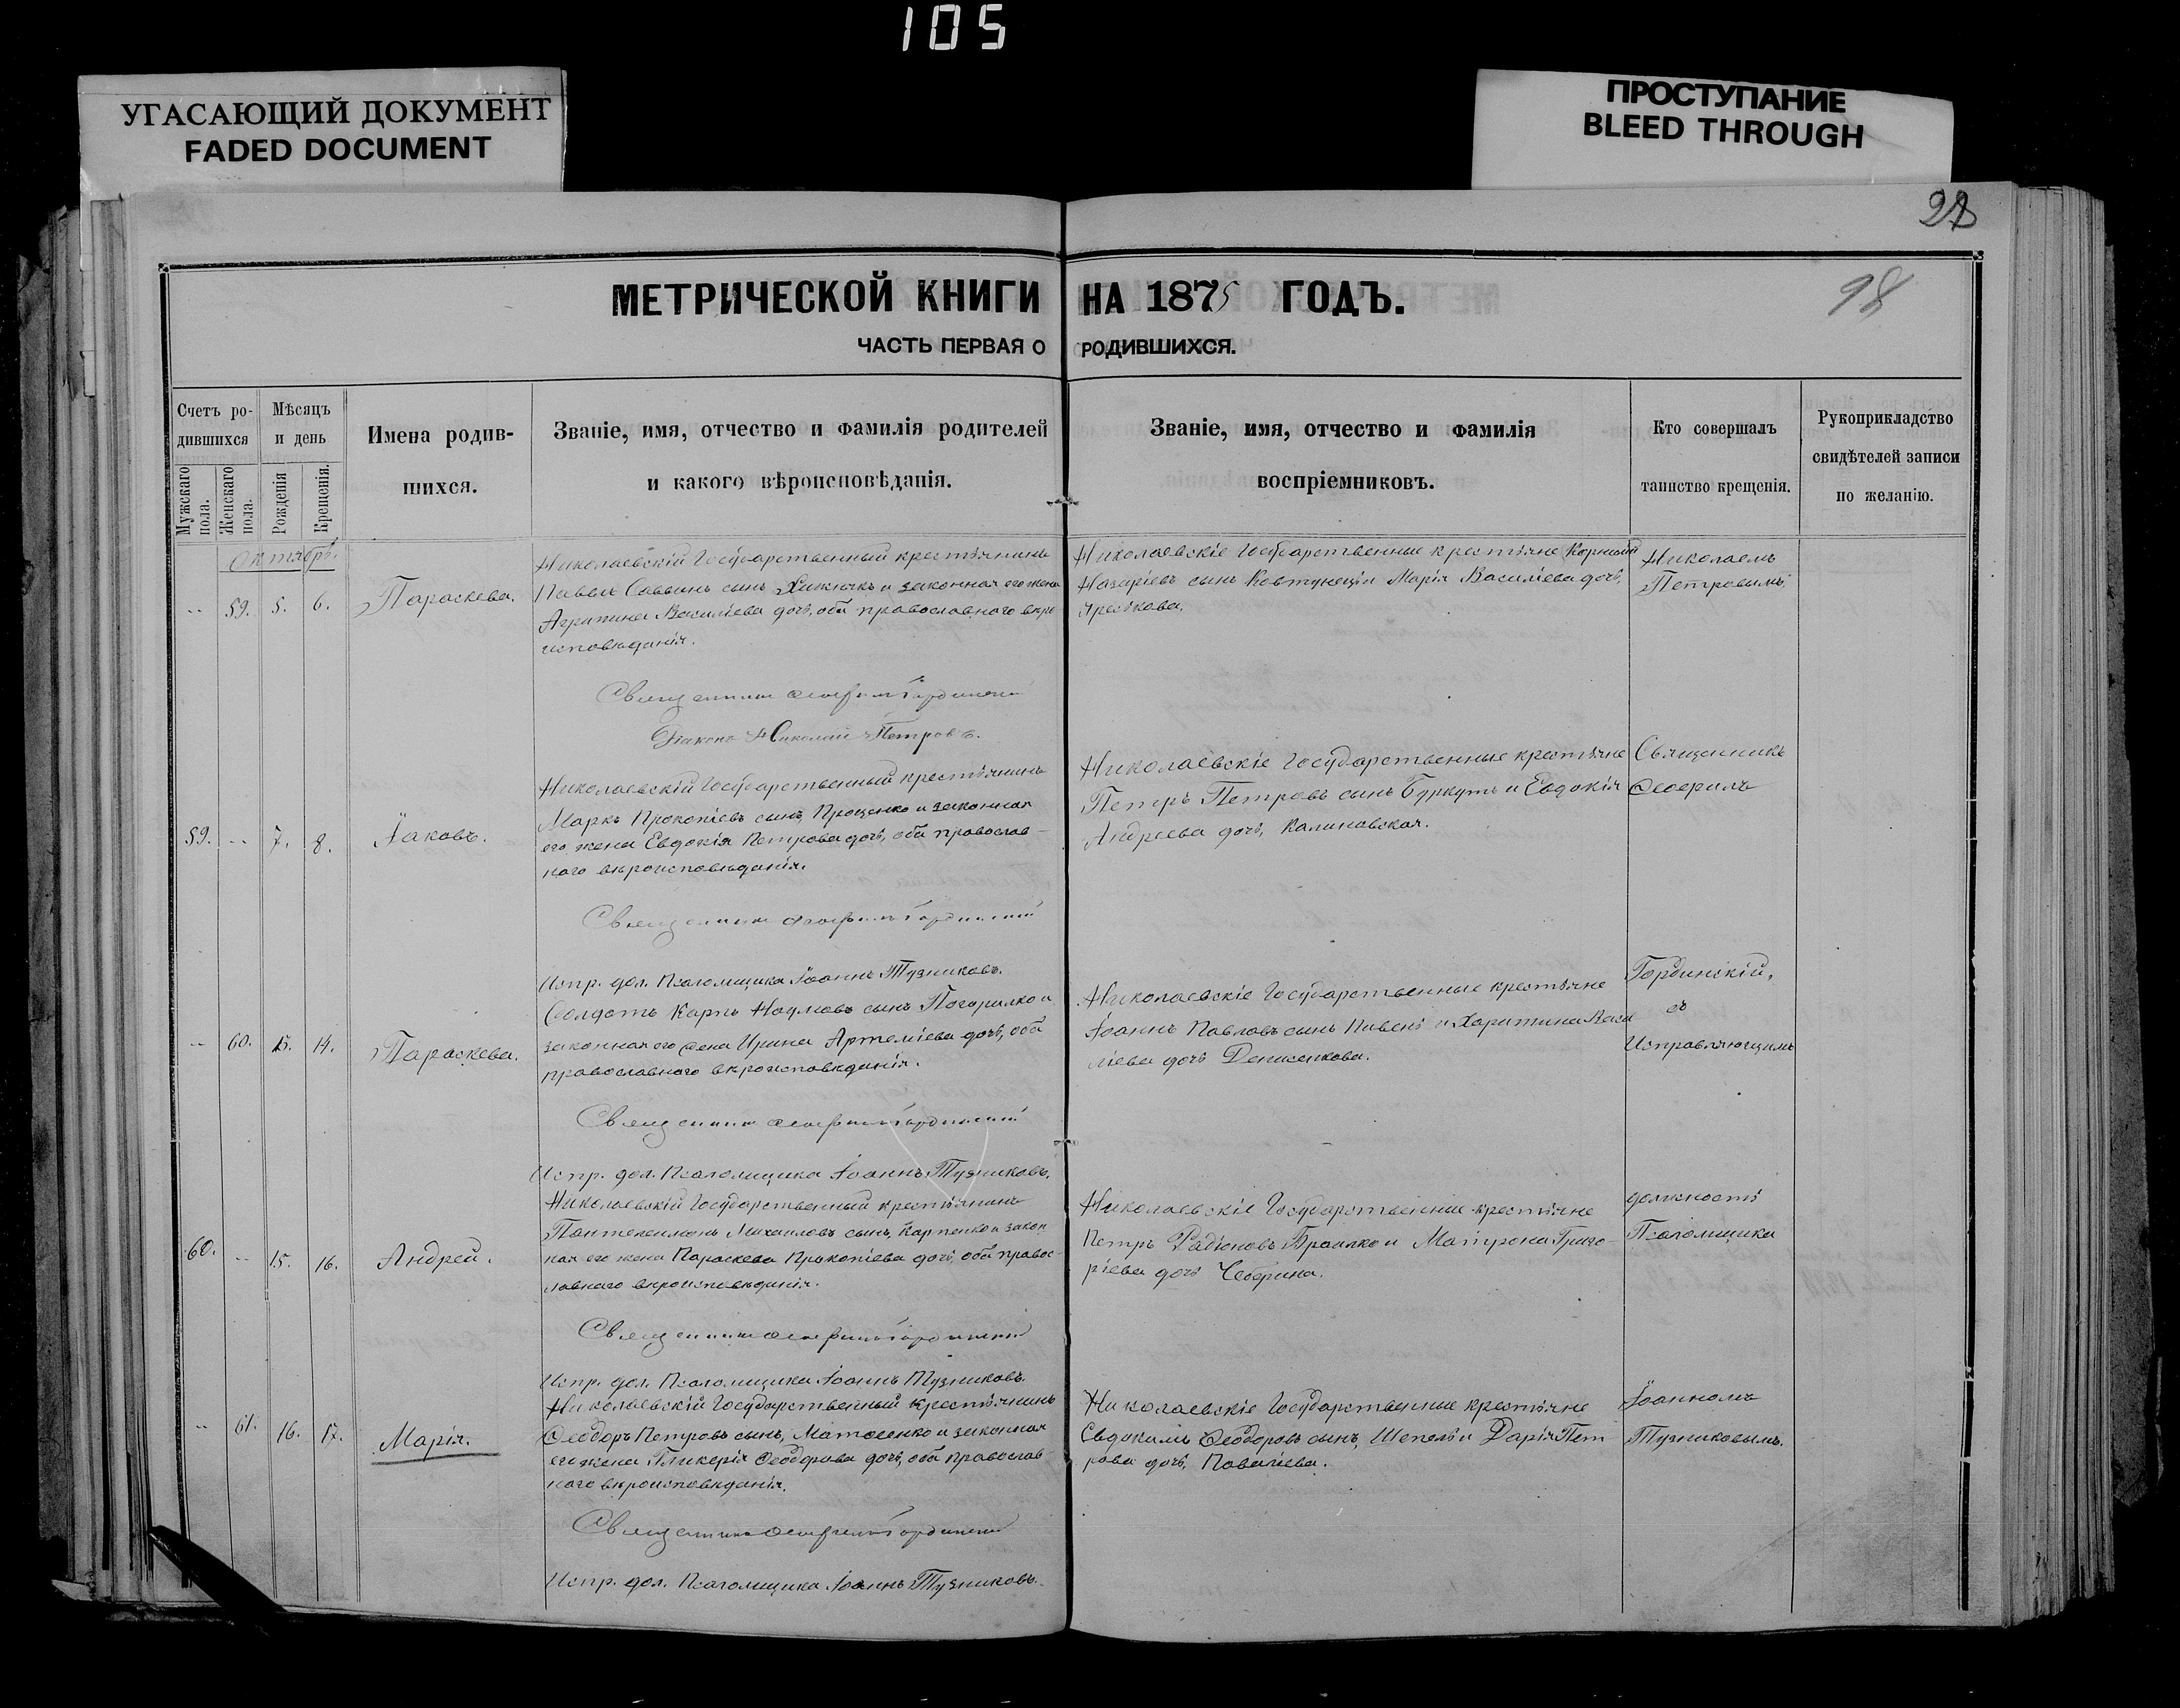 105
УГАСАЮЩИЙ ДОКУМЕНТ
FADED DOCUMENT
ПРОСТУПАНИЕ
BLEED THROUGH
98
МЕТРИЧЕСКОЙ КНИГИ НА 1875 ГОДЪ.
ЧАСТЬ ПЕРВАЯ О РОДИВШИХСЯ.
Счетъ ро-
дившихся
Мужскаго пола.
Женскаго пола.
Мѣсяцъ
и день
Рожденія
Крещенія.
Имена родив-
шихся.
Званіе, имя, отчество и фамилія родителей
и какого вѣроисповѣданія.
Званіе, имя, отчество и фамилія
воспріемниковъ.
Кто совершалъ
таинство крещенія.
Рукоприкладство
свидѣтелей записи
по желанію.
Октябрь.
-- 59. 5. 6. Параскева.
Николаевскій Государственный крестьянинъ
Павелъ Саввинъ сынъ и законная его жена
Агрипина Васильева дочь, оба православнаго вѣро
исповѣданія.
Николаевскіе Государственные крестьяне Корнилій
Назаріевъ сынъ и Марія Васильева дочь,
Николаемъ
Петровымъ,
Священникъ Ѳеофилъ Гординскій
Діаконъ Николай Петровъ.
59. -- 7. 8. Іаковъ.
Николаевскій Государственный крестьянинъ
Маркъ Прокопіевъ сынъ, Проценко и законная
его жена Евдокія Петрова дочь, оба православ-
наго вѣроисповѣданія.
Николаевскіе Государственные крестьяне
Петръ Петровъ сынъ Буркутъ и Евдокія
Андреева дочь, Калиновская.
Священникъ
Ѳеофилъ
Священникъ Ѳеофилъ Гординскій
Испр. дол. Псаломщика Іоаннъ Тузниковъ.
-- 60. 13. 14. Параскева.
Солдатъ Карпъ Наумовъ сынъ Погорилко и
законная его жена Ирина Артеміева дочь, оба
православнаго вѣроисповѣданія.
Николаевскіе Государственные крестьяне
Іоаннъ Павловъ сынъ Пивень и Харитина Васи
ліева дочь Денисенкова.
Гординскій,
съ
Исправляющимъ
Священникъ Ѳеофилъ Гординскій
Испр. дол. Псаломщика Іоаннъ Тузниковъ.
60. -- 15. 16. Андрей.
Николаевскій Государственный крестьянинъ
Пантелеимонъ Михаиловъ сынъ, Карпенко и закон
ная его жена Параскева Прокопіева дочь, оба правос-
лавнаго вѣроисповѣданія.
Николаевскіе Государственные крестьяне
Петръ Радіоновъ Браилко и Матрона Григо-
ріева дочь Чебрина.
должность
Псаломщика
Священникъ Ѳеофилъ Гординскій
Испр. дол. Псаломщика Іоаннъ Тузниковъ.
-- 61. 16. 17. Марія.
Николаевскій Государственный крестьянинъ
Ѳеодоръ Петровъ сынъ, Матвеенко и законная
его жена Гликерія Ѳеодорова дочь, оба православ-
наго вѣроисповѣданія.
Николаевскіе Государственные крестьяне
Евдокимъ Ѳеодоровъ сынъ, Шепель и Дарія Пет
рова дочь, Ковалева.
Іоанномъ
Тузниковымъ.
Священникъ Ѳеофилъ Гординскій
Испр. дол. Псаломщика Іоаннъ Тузниковъ.